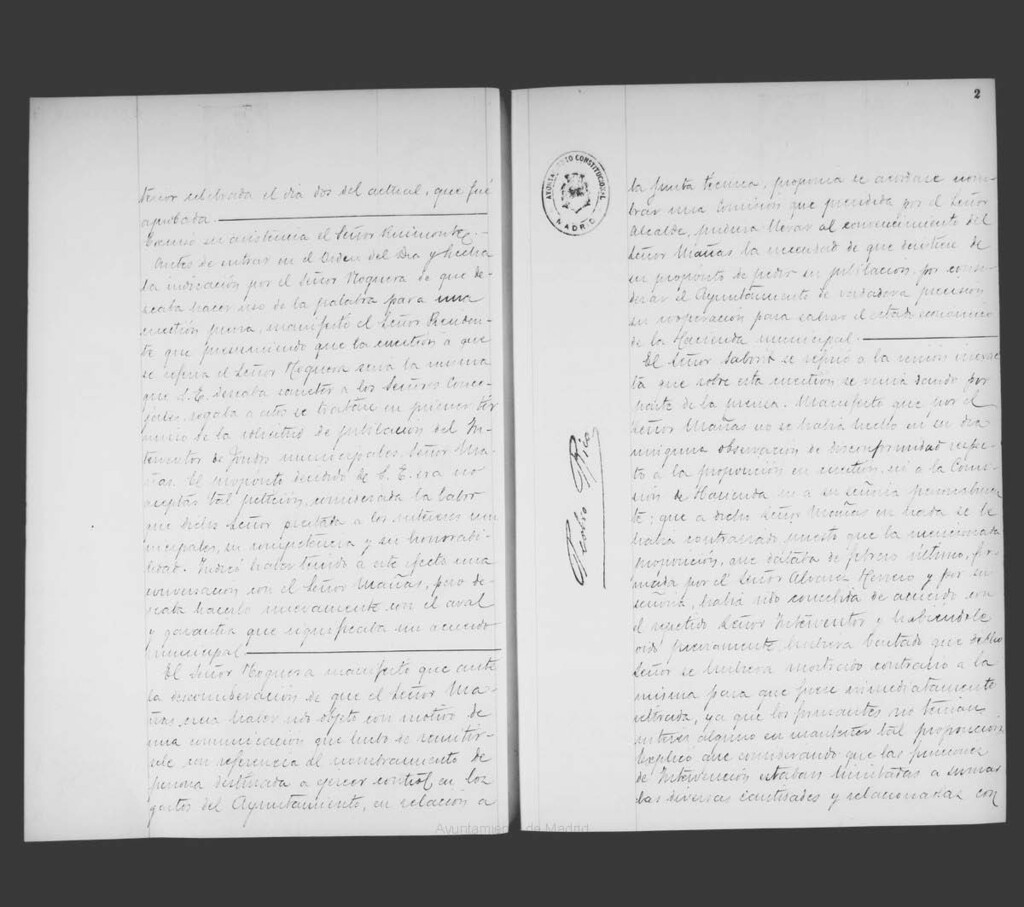 terior celebrada el dia dos del actual, que fué
aprobada.
Excusó su asistencia el Señor
Antes de entrar en el Orden del Dia y hecha
la indicación por el Señor Noguera de que de-
seaba hacer uso de la palabra para una
cuestión previa, manifestó el Señor Presiden-
te que presumiendo que la cuestión a que
se refería el Señor Noguera sería la misma
que S.E. deseaba someter a los Señores Conce-
jales, rogaba a estos se tratase en primer tér-
mino de la solicitud de jubilación del In-
terventor de fondos municipales, Señor Ma-
ñas. El propósito decidido de S.E. era no
aceptar tal petición, considerada la labor
que dicho señor prestaba a los intereses mu-
nicipales, su competencia y su honorabi-
lidad. Indicó haber tenido a este efecto una
conversación con el Señor Mañas, pero de-
seaba hacerlo nuevamente con el aval
y garantía que significaba un acuerdo
municipal.
El Señor Noguera manifestó que ante
la desconsideración de que el Señor Ma-
ñas creía haber sido objeto con motivo de
una comunicación que hubo de remitir-
sele con referencia al nombramiento de
persona destinada a ejercer control en los
gastos del Ayuntamiento, en relación a
Ayuntamiento de Madrid
2
AYUNTAMIENTO CONSTITUCIONAL
MADRID
Pedro Rico
la Junta técnica, proponía se acordase nom-
brar una Comisión que presidida por el Señor
Alcalde, pudiera llevar al convencimiento del
Señor Mañas la necesidad de que desistiese de
su propósito de pedir su jubilación, por consi-
derar el Ayuntamiento de verdadera precisión
su cooperación para salvar el estado económico
de la Hacienda municipal.
El Señor Saborit se refirió a la versión inexac-
ta que sobre esta cuestión se venía dando por
parte de la prensa. Manifestó que por el
Señor Mañas no se había hecho en su dia
ninguna observación de disconformidad respec-
to a la proposición en cuestión, ni a la Comi-
sión de Hacienda ni a su señoría personalmen-
te; que a dicho Señor Mañas en nada se le
había contrariado puesto que la mencionada
proposición, que databa de febrero último, fir-
mada por el Señor Alvarez Herrero y por su
señoría, había sido concebida de acuerdo con
el repetido Señor Interventor y habiéndole
oido previamente, hubiera bastado que dicho
Señor se hubiera mostrado contrario a la
misma para que fuese inmediatamente
retirada, ya que los firmantes no tenían
interés alguno en mantener tal proposición.
Explicó que considerando que las funciones
de Intervención estaban limitadas a sumar
las diversas cantidades y relacionarlas con